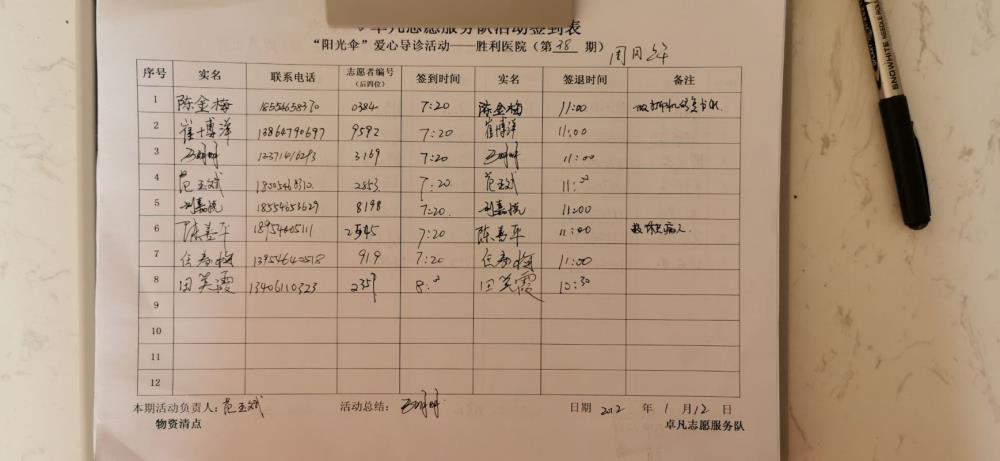 卓凡志愿服务队活动签到表
“阳光伞”爱心导诊活动——胜利医院（第 38 期）
序号 实名 联系电话 志愿者编号（后四位） 签到时间 实名 签退时间 备注
1 陈金梅 18554658370 0384 7:20 陈金梅 11:00
2 崔博洋 13864790697 9592 7:20 崔博洋 11:00
3 3169 7:20 11:00
4 范玉斌 2853 7:20 范玉斌 11:00
5 刘嘉悦 18554653629 8198 7:20 刘嘉悦 11:00
6 陈春平 18954605111 2545 7:20 陈春平 11:00
7 任春梅 13954640518 919 7:20 任春梅 11:00
8 田笑霞 13406110323 2357 8:00 田笑霞 10:30
9
10
11
12
本期活动负责人：范玉斌 活动总结： 日期 2012 年 1 月 12 日
物资清点 卓凡志愿服务队
SNOWHITE